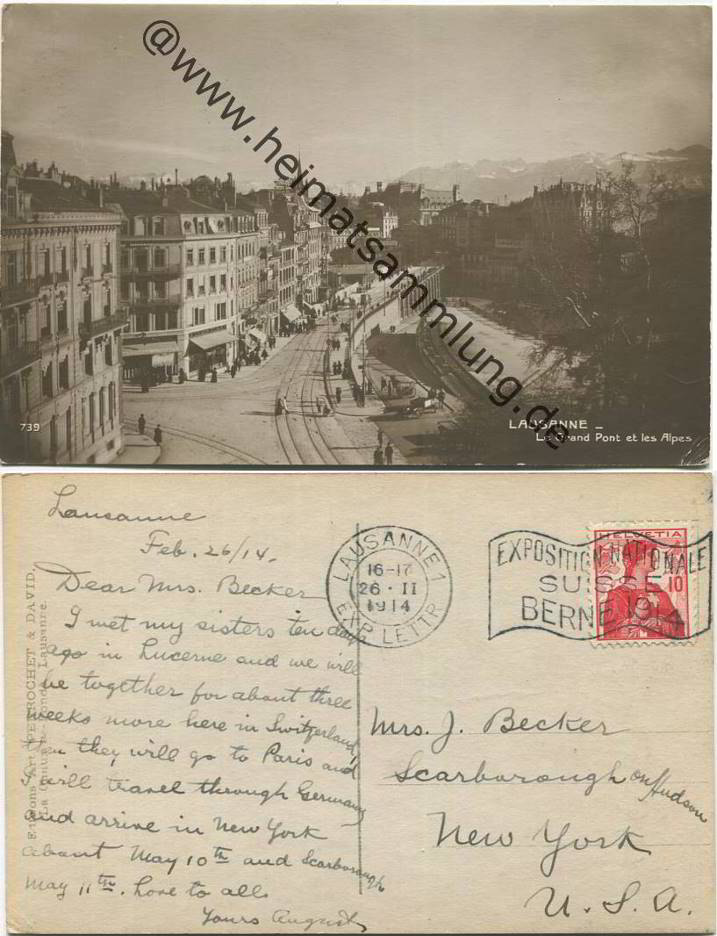 @www.heimatsammlung.de
739
LAUSANNE _
Le Grand Pont et les Alpes
Lausanne
Feb. 26/14.
Dear Mrs. Becker
I met my sisters ten days
ago in Lucerne and we will
be together for about three
weeks more here in Switzerland,
then they will go to Paris and
I will travel through Germany
and arrive in New York
about May 10th and Scarborough
May 11th. Love to all.
Yours August
PERROCHET & DAVID,
Lausanne.
LAUSANNE 1
16-17
26 · II
1914
EXP. LETTR
EXPOSITION NATIONALE
SUISSE
BERNE 1914
HELVETIA
10
Mrs. J. Becker
Scarborough on Hudson
New York
U. S. A.